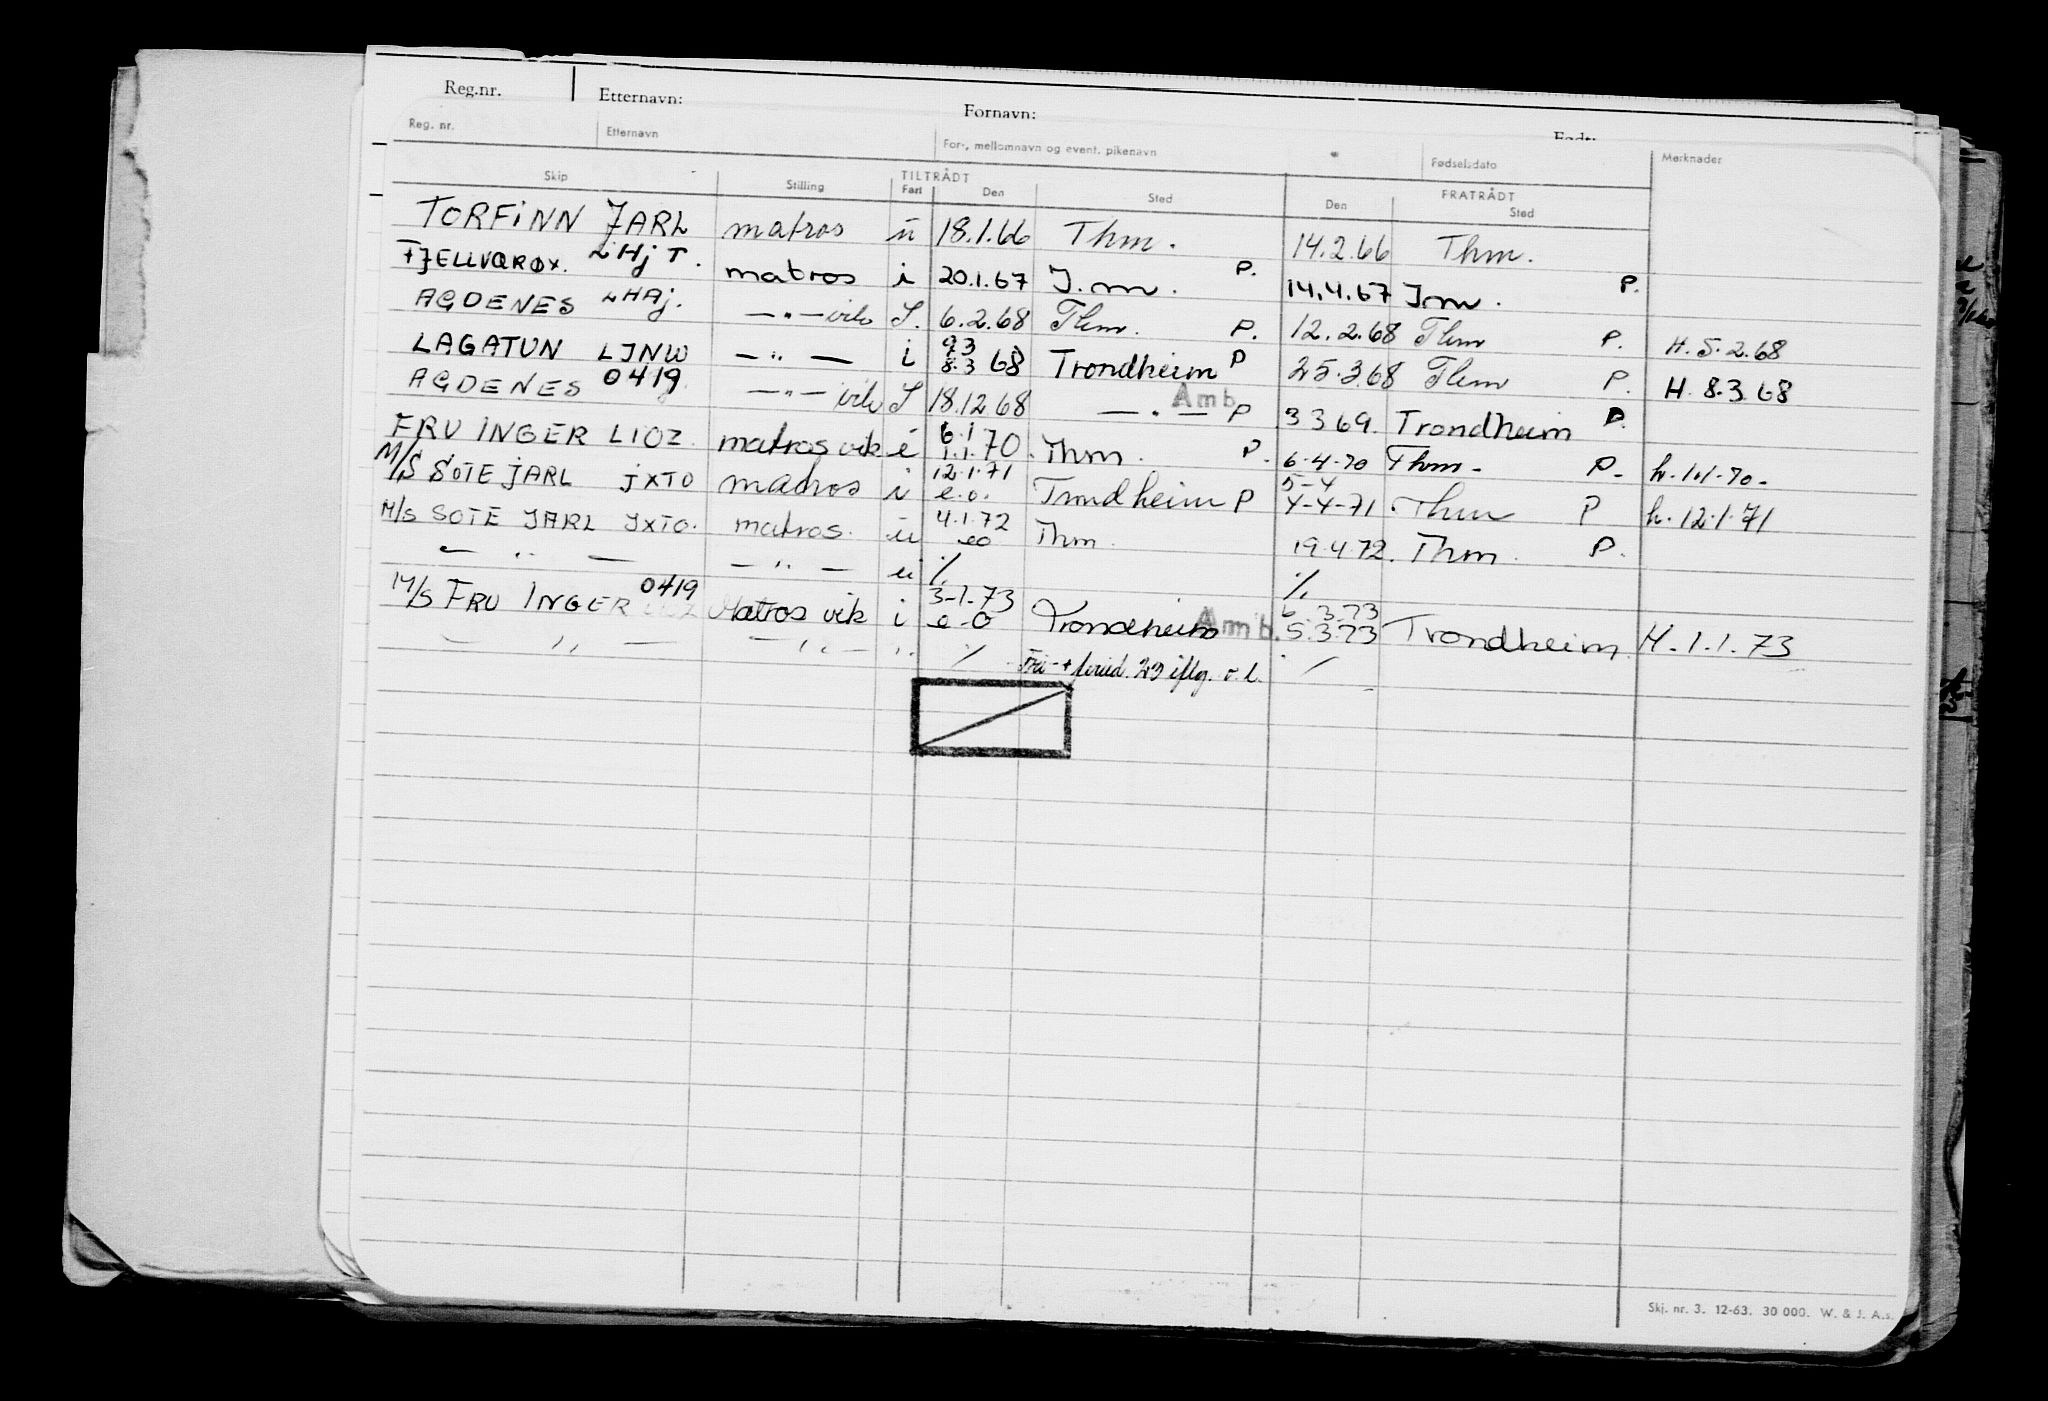 Reg.nr. Etternavn: Fornavn:
Reg. nr. Etternavn For-, mellomnavn og event. pikenavn Fødselsdato Merknader
Skip Stilling TILTRÅDT Fart Den Sted FRATRÅDT Den Sted
TORFINN JARL matros u 18.1.66 Thm. 14.2.66 Thm.
FJELLVÆRØY. LHJT. matros i 20.1.67 J.m. P. 14.4.67 Jm. P.
AGDENES LHAJ. — " — vik S. 6.2.68 Thm. P. 12.2.68 Thm P. H. 5.2.68
LAGATUN LJNW — " — i 9.3 8.3 68 Trondheim P 25.3.68 Thm P. H. 8.3.68
AGDENES 0419 — " — vik S 18.12.68 — " — Amb. P 3 3 69. Trondheim P.
FRU INGER LIOZ. matros vik i 6.1 1.1.70. Thm. P. 6-4-70 Thm. P. h. 1.1.70.
M/S SOTE JARL JXTO matros i 12.1.71 e.o. Trondheim P 5-4 4-4-71 Thm P h. 12.1.71
M/S SOTE JARL JXTO. matros. u 4.1.72 eo Thm. 19.4.72. Thm. P.
— " — — " — u ./. ./.
M/S FRU INGER 0419 Matros vik i 3-1.73 e-o Trondheim Amb. 6.3.73 5.3.73 Trondheim H. 1.1.73
— " — — " — " ./. ./.
Skj. nr. 3. 12-63. 30 000. W. & J. A.s.